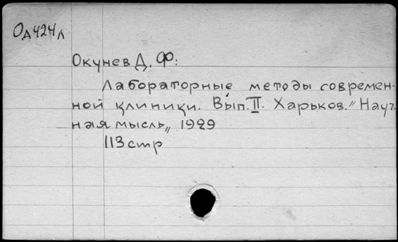 Од424л
Окунев Д. Ф:
Лабораторные методы современ-
ной клиники. Вып. II. Харьков. "Науч
ная мысль„ 1929
113 стр